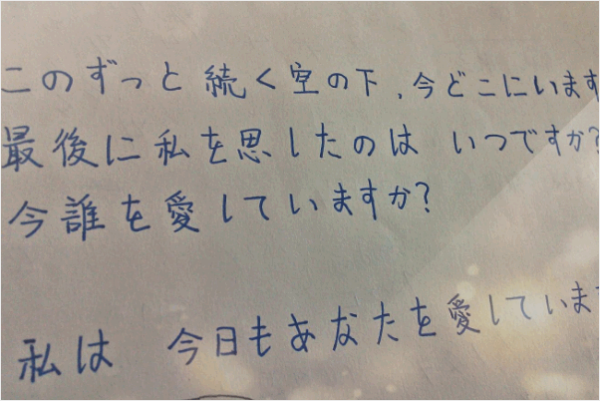 このずっと続く空の下、今どこにいます
最後に私を思したのは いつですか?
今誰を愛していますか?
私は 今日もあなたを愛していま